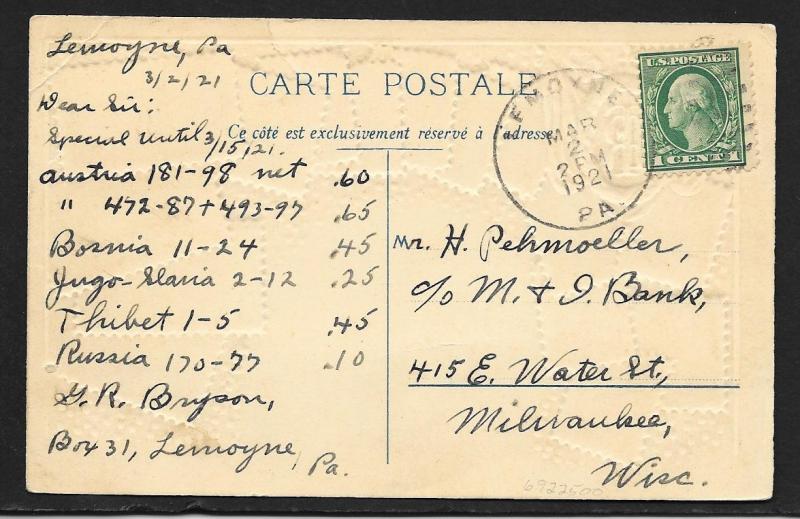 Lemoyne, Pa
3/2/21
CARTE POSTALE
Dear Sir:
Ce côté est exclusivement réservé à l'adresse
Special until 3/15/21.
Austria 181-98 net .60
" 472-87 + 493-97 .65
Bosnia 11-24 .45
Jugo-Slavia 2-12 .25
Thibet 1-5 .45
Russia 170-77 .10
G. R. Bryson,
Box 31, Lemoyne,
Pa.
U.S. POSTAGE
1 CENT 1
LEMOYNE
MAR
2
2 PM
1921
PA.
Mr. H. Pehmoeller,
c/o M. & I. Bank,
415 E. Water St.,
Milwaukee,
Wisc.
6922500